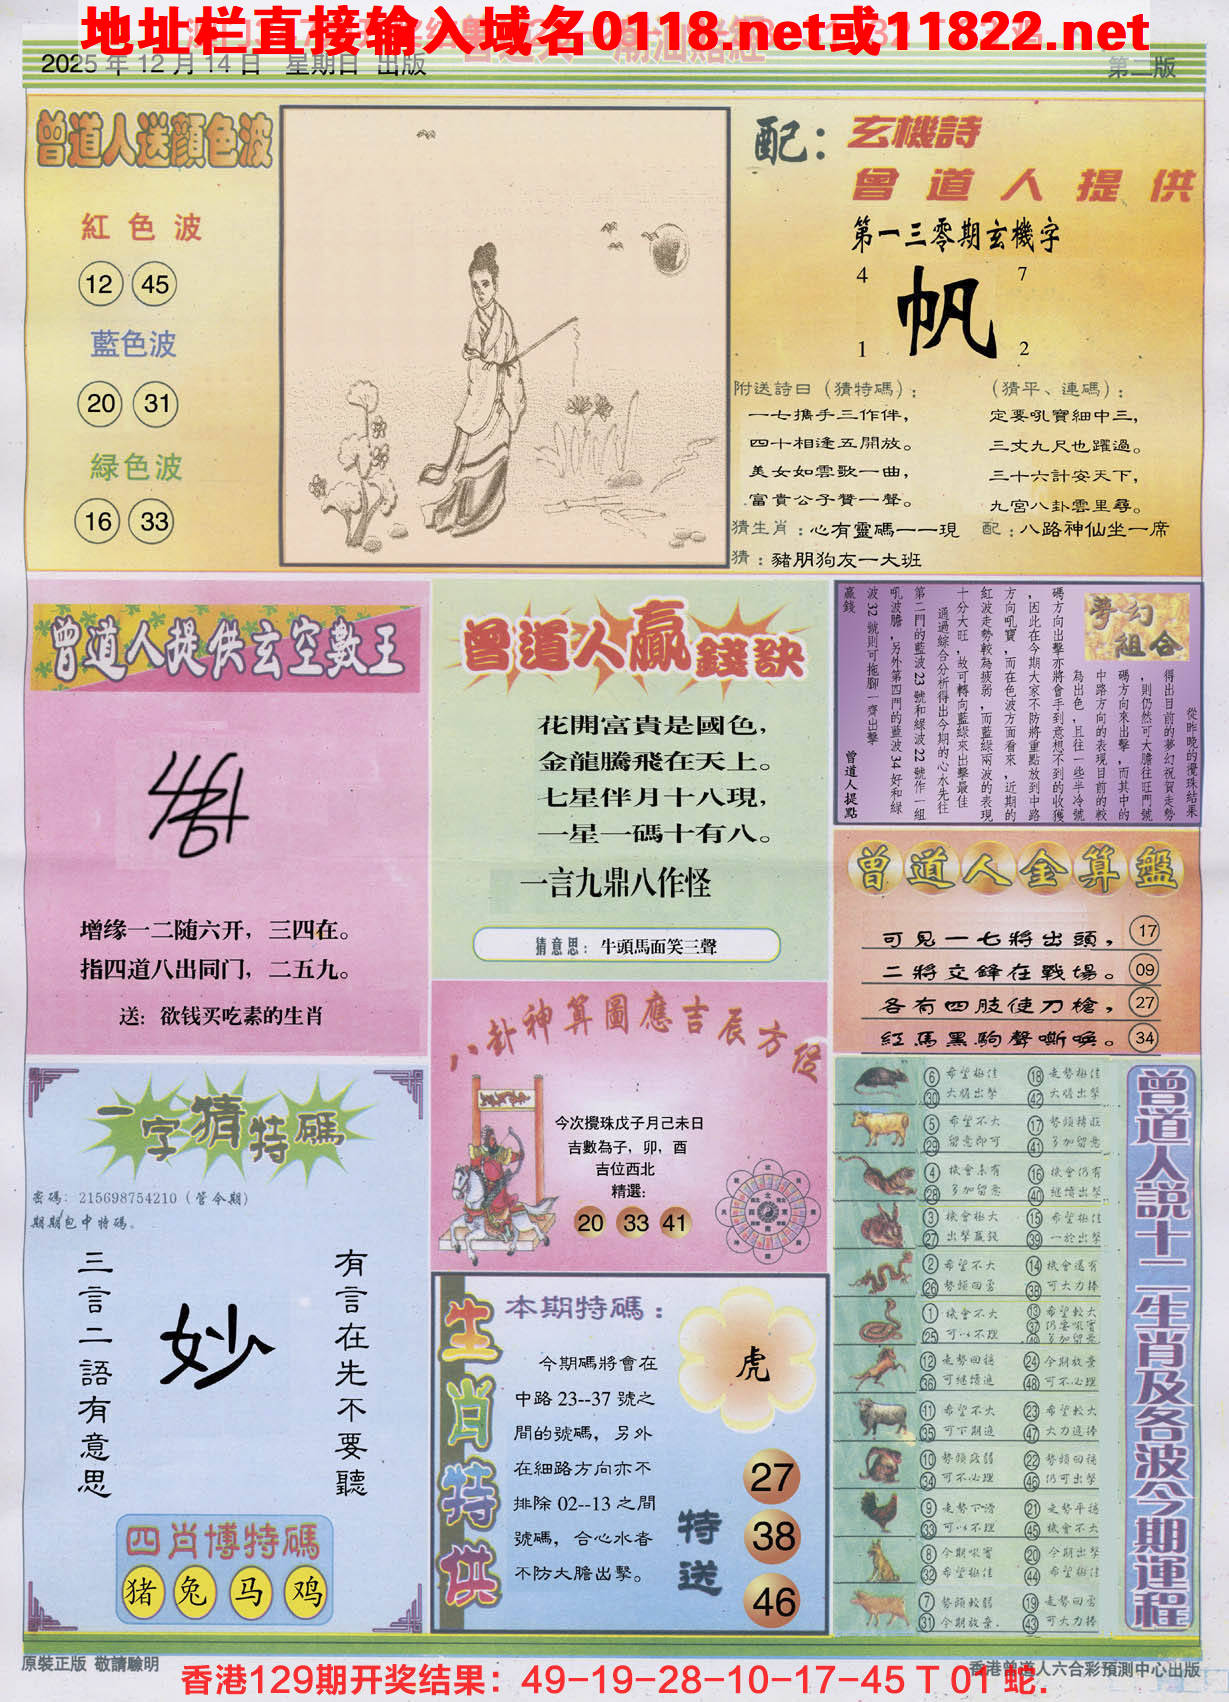 地址栏直接输入域名0118.net或11822.net
2025年12月14日 星期日 出版
第二版
曾道人送顏色波
紅色波
12 45
藍色波
20 31
緑色波
16 33
配：玄機詩
曾道人提供
第一三零期玄機字
4 7
帆
1 2
附送詩曰（猜特碼）：
一七攜手三作伴，
四十相逢五開放。
美女如雲歌一曲，
富貴公子贊一聲。
（猜平、連碼）：
定要吼實細中三，
三丈九尺也躍過。
三十六計安天下，
九宮八卦雲里尋。
猜生肖：心有靈碼一一現
配：八路神仙坐一席
猜：豬朋狗友一大班
曾道人提供玄空數王
增缘一二随六开，三四在。
指四道八出同门，二五九。
送：欲钱买吃素的生肖
曾道人贏錢訣
花開富貴是國色，
金龍騰飛在天上。
七星伴月十八現，
一星一碼十有八。
一言九鼎八作怪
猜意思：牛頭馬面笑三聲
夢幻組合
從昨晚的攪珠結果
得出目前的夢幻祝賀走勢
，則仍然可大膽往旺門號
碼方向來出擊，而其中的
中路方向的表現目前的較
為出色，且往一些半冷號
碼方向出擊亦將會手到意想不到的收獲
，因此在今期大家不防將重點放到中路
方向吼實，而在色波方面看來，近期的
紅波走勢較為疲弱，而藍綠兩波的表現
十分大旺，故可轉向藍綠來出擊最佳
通過綜合分析得出今期的心水先往
第二門的藍波23號和綠波22號作一組
吼波膽，另外第四門的藍波34好和綠
波32號則可拖腳一齊出擊
贏錢
曾道人提點
曾道人金算盤
可見一七將出頭， 17
二將交鋒在戰場。 09
各有四肢使刀槍， 27
紅馬黑駒聲嘶喚。 34
八卦神算圖應吉辰方位
今次攪珠戊子月己未日
吉數為子，卯，酉
吉位西北
精選：
20 33 41
一字猜特碼
密碼：215698754210（管今期）
期期包中特碼。
有言在先不要聽
妙
三言二語有意思
四肖博特碼
猪 兔 马 鸡
生肖特供
本期特碼：
今期碼將會在
中路23--37號之
間的號碼，另外
在細路方向亦不
排除02--13之間
號碼，合心水者
不防大膽出擊。
虎
特送
27
38
46
曾道人說十二生肖及各波今期運程
6 希望極佳 18 走勢極佳
30 大膽出擊 42 大膽出擊
5 希望不大 17
29 留意即可 41 多加留意
4 機會未有 16 機會仍有
28 多加留意 40 繼續出擊
3 機會極大 15 希望極佳
27 出擊贏錢 39 一於出擊
2 希望不大 14 機會還有
26 勢頭回落 38 可大力捧
1 機會不大 13 希望較大
25 可以不理 37 仍要吼實
12 走勢回穩 24 今期放棄
36 可繼續追 48 可不必理
11 希望不大 23 希望較大
35 可下期追 47 大力追捧
10 勢頭疲弱 22 勢頭回穩
34 可不必理 46 仍可出擊
9 走勢下滑 21 走勢平穩
33 可以不理 45 機會不大
8 今期吼實 20 今期出擊
32 希望極佳 44 希望極佳
7 勢頭較弱 19 走勢回落
31 今期放棄. 43 可大力捧
原裝正版 敬請驗明
香港曾道人六合彩預測中心出版
香港129期开奖结果：49-19-28-10-17-45 T 01 蛇.